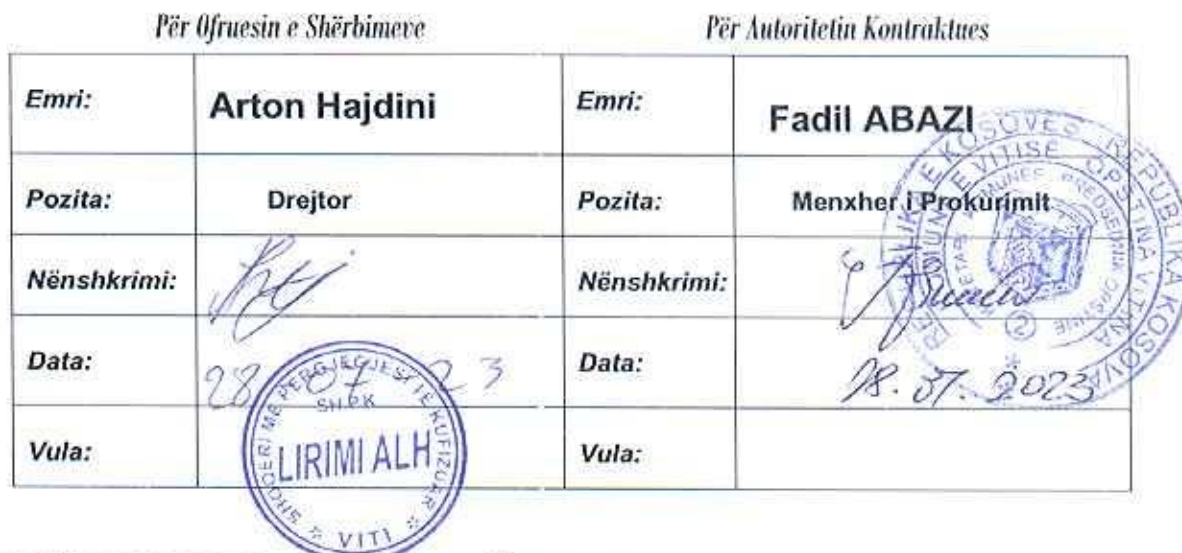 Për Ofruesin e Shërbimeve Për Autoritetin Kontraktues
Emri: Arton Hajdini Emri: Fadil ABAZI
Pozita: Drejtor Pozita: Menxher i Prokurimit
Nënshkrimi: Nënshkrimi:
Data: 28 07 23 Data: 28.07.2023
Vula: Vula:
SHOQERI ME PERGJEGJESI TE KUFIZUAR
SH.P.K
LIRIMI ALH
VITI
REPUBLIKA KOSOVA
OPSTINA VITINA
2